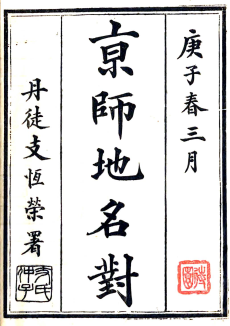 庚子春三月
京師地名對
丹徒支恆榮署
支氏